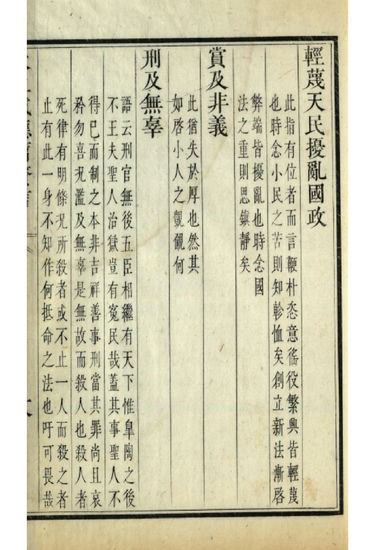 輕蔑天民擾亂國政
此指有位者而言鞭朴恣意徭役繁興皆輕蔑
也時念小民之苦則知軫恤矣創立新法漸啓
弊端皆擾亂也時念國
法之重則思鎮靜矣
賞及非義
此猶失於厚也然其
如啓小人之覬覦何
刑及無辜
語云刑官無後五臣相繼有天下惟臯陶之後
不王夫聖人治獄豈有冤民哉蓋其事聖人不
得已而制之本非吉祥善事刑當其罪尚且哀
矜勿喜況濫及無辜是無故而殺人也殺人者
死律有明條況所殺者或不止一人而殺之者
止有此一身不知作何抵命之法也吁可畏哉